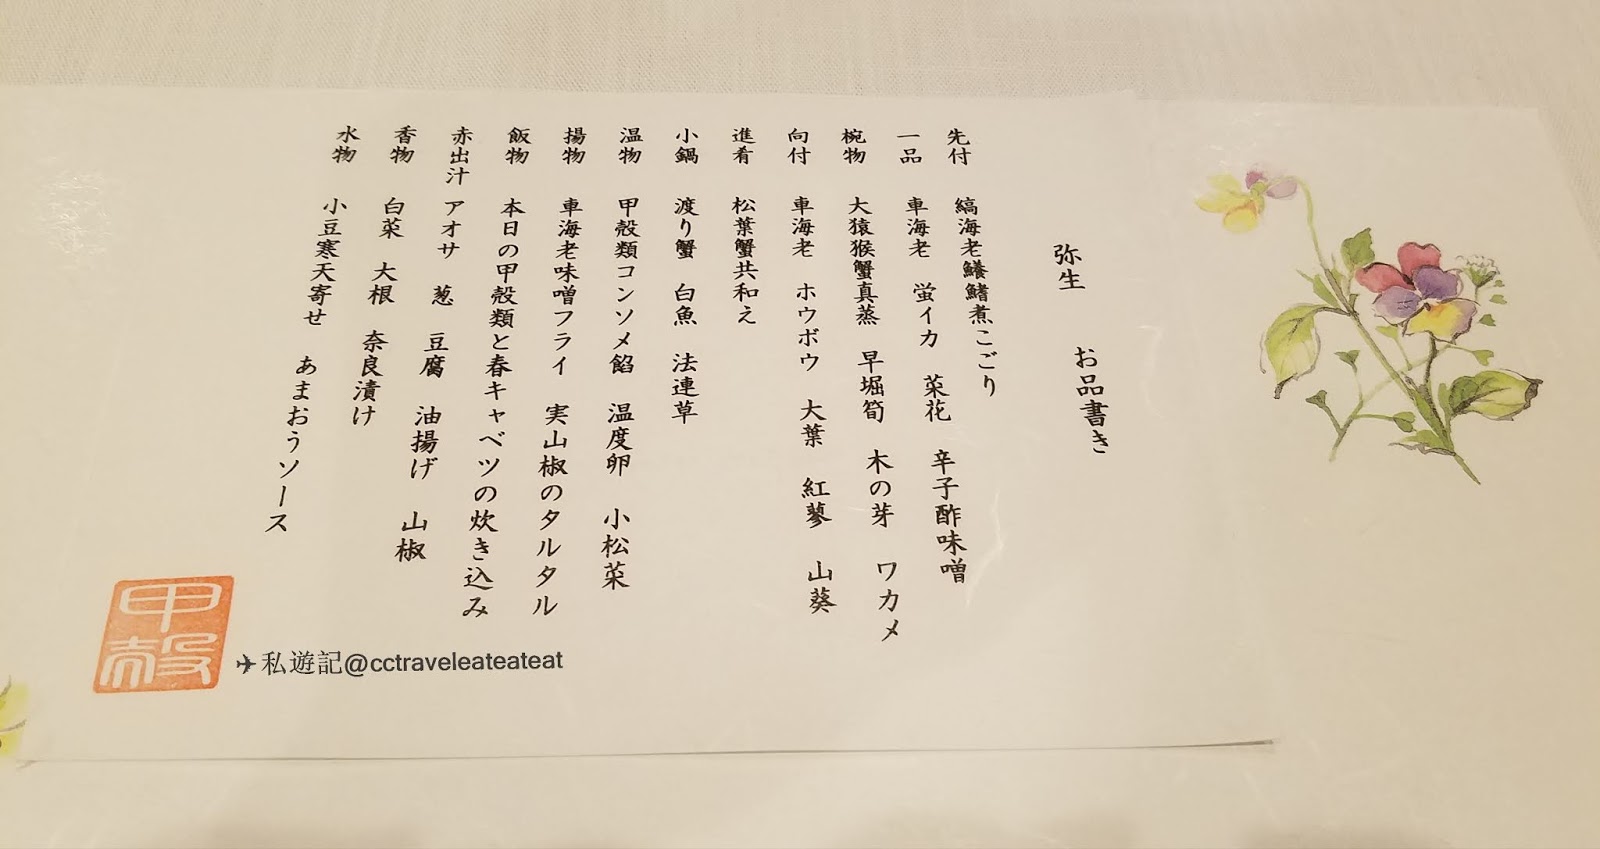 弥生　お品書き
先付　縞海老鱶鰭煮こごり
一品　車海老　蛍イカ　菜花　辛子酢味噌
椀物　大猿猴蟹真蒸　早堀筍　木の芽　ワカメ
向付　車海老　ホウボウ　大葉　紅蓼　山葵
進肴　松葉蟹共和え
小鍋　渡り蟹　白魚　法連草
温物　甲殻類コンソメ餡　温度卵　小松菜
揚物　車海老味噌フライ　実山椒のタルタル
飯物　本日の甲殻類と春キャベツの炊き込み
赤出汁　アオサ　葱　豆腐　油揚げ　山椒
香物　白菜　大根　奈良漬け
水物　小豆寒天寄せ　あまおうソース
甲殻
私遊記@cctraveleateateat